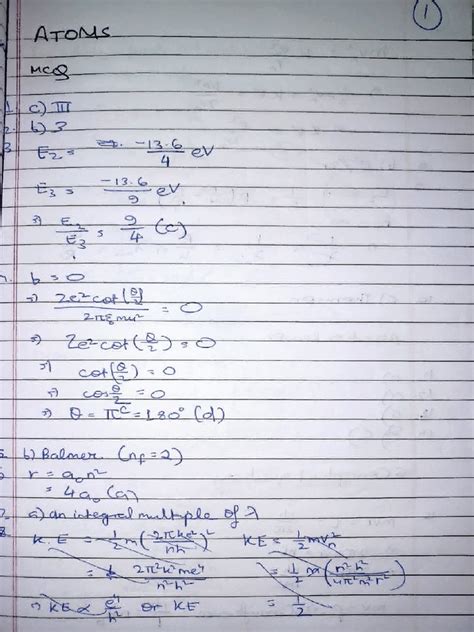 1
ATOMS
MCQ
1. c) III
2. b) 3
3 E₂ = -13.6/4 eV
E₃ = -13.6/9 eV
⇒ E₂/E₃ = 9/4 (c)
b = 0
⇒ Ze²cot(θ/2)/2πε₀mu² = 0
⇒ Ze²cot(θ/2) = 0
⇒ cot(θ/2) = 0
⇒ cosθ/2 = 0
⇒ θ = πᶜ = 180° (d)
b) Balmer (nf = 2)
r = a₀n²
= 4a₀ (a)
a) an integral multiple of λ
K.E = 1/2 m(2πke²/nh)² KE = 1/2 mvₙ²
2π²k²me⁴/n²h² = 1/2 m(n²h²/4π²m²r²)
⇒ KE ∝ e⁴/h² or KE = 1/2